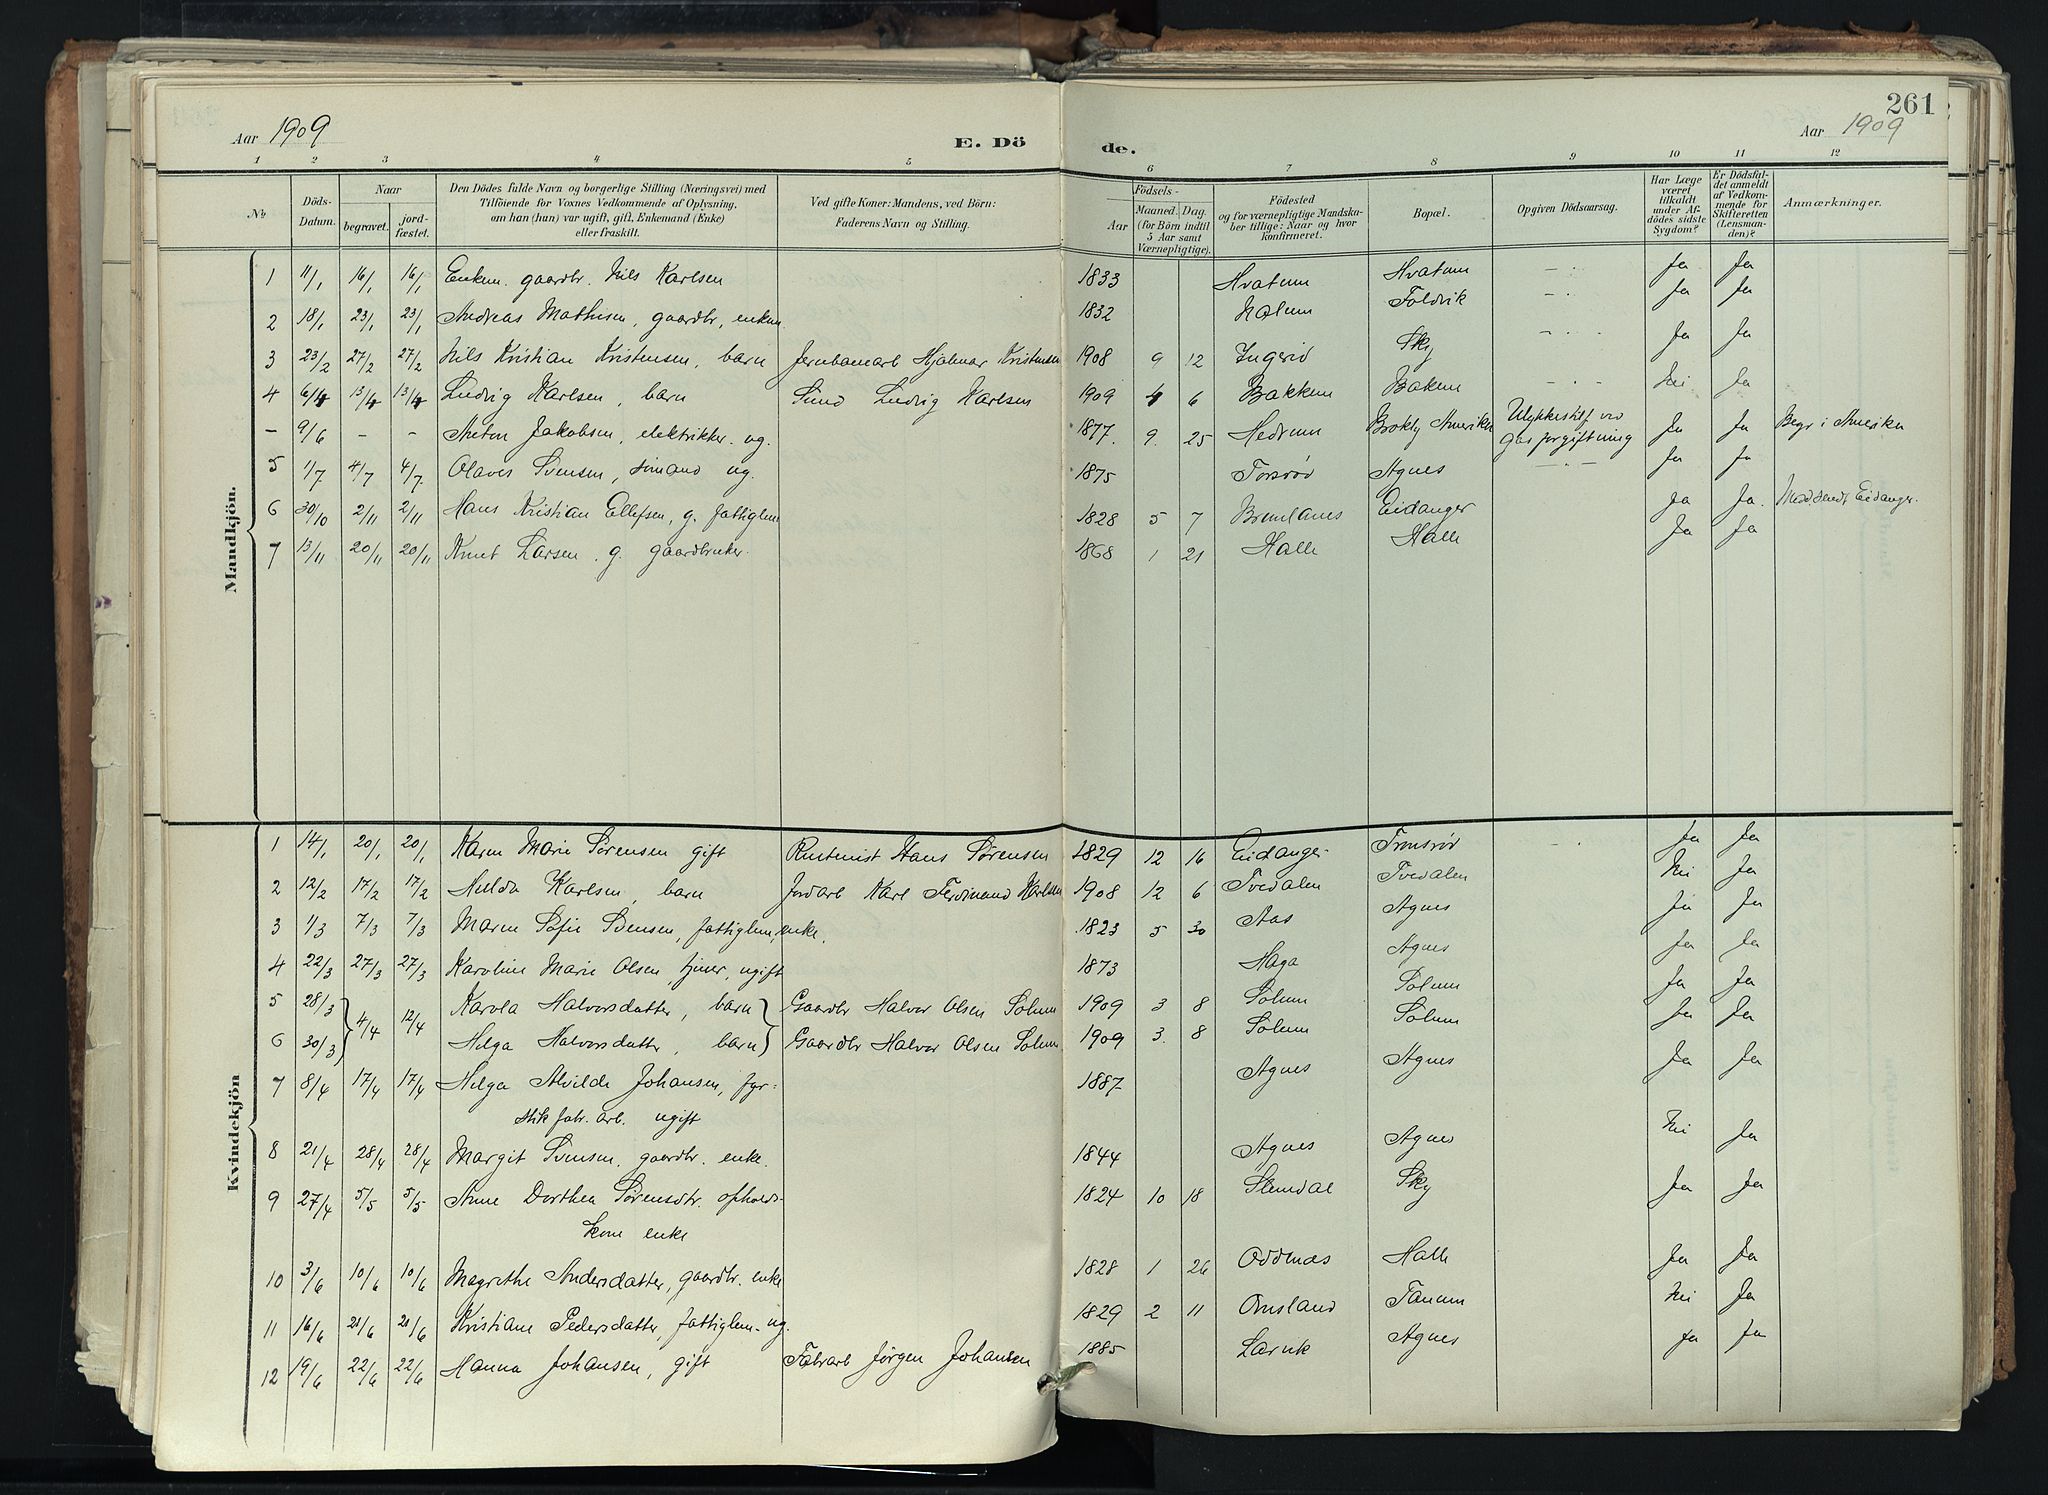 261
Aar 1909
E. Dö
de.
Aar 1909
1 2 3 4 5 6 7 8 9 10 11 12
№
Döds-
Datum.
Naar
begravet.
jord-
fæstet.
Den Dödes fulde Navn og borgerlige Stilling (Næringsvei) med
Tilföiende for Voxnes Vedkommende af Oplysning,
om han (hun) var ugift, gift, Enkemand (Enke)
eller fraskilt.
Ved gifte Koner: Mandens, ved Börn:
Faderens Navn og Stilling.
Födsels-
Aar
Maaned.
Dag.
(for Börn indtil
5 Aar samt
Værnepligtige).
Födested
og for værnepligtige Mandska-
ber tillige: Naar og hvor
konfirmeret.
Bopæl.
Opgiven Dödsaarsag.
Har Læge
været
tilkaldt
under Af-
dödes sidste
Sygdom?
Er Dödsfal-
det anmeldt
af Vedkom-
mende for
Skifteretten
(Lensman-
den)?
Anmærkninger.
Mandkjön.
1 11/1 16/1 16/1 Enkem. gaardbr. Nils Karlsen 1833 Hvatum Hvatum - " - Ja Ja
2 18/1 23/1 23/1 Andreas Mathisen, gaardbr, enkem. 1832 Nalum Foldvik - " - Ja Ja
3 23/2 27/2 27/2 Nils Kristian Kristensen, barn Jernbanearb Hjalmar Kristensen 1908 9 12 Ingerid Sky - " - Ja Ja
4 6/4 13/4 13/4 Ludvig Karlsen, barn Smed Ludvig Karlsen 1909 4 6 Bakken Bakken - " - Nei Ja
- 9/6 - - Anton Jakobsen, elektrikker. ug. 1877. 9. 25 Hedrum Brokly Amerika Ulykkestilf ved gasforgiftning Ja Ja Begr i Amerika
5 1/7 4/7 4/7 Olaves Svensen, sømand ug. 1875 Torsrød Agnes - " - Ja Ja
6 30/10 2/11 2/11 Hans Kristian Ellefsen, g. fattiglem 1828 5 7 Brunlanes Eidanger Ja Ja. Eidanger.
7 13/11 20/11 20/11 Knut Larsen. g. gaardbruker. 1868 1 21 Halle Halle Ja Ja
Kvindekjön
1 14/1 20/1 20/1 Karen Marie Sørensen gift Hans Sørensen 1829 12 16 Eidanger Tronsrød " Ja Ja
2 12/2 17/2 17/2 Hulda Karlsen, barn Jordarb Karl Ferdinand Karlsen 1908 12 6 Tvedalen Tvedalen Nei Ja
3 1/3 7/3 7/3 Maren Sofie Svensen, fattiglem, enke. 1823 5 30 Aas Agnes Ja Ja
4 22/3 27/3 27/3 Karoline Marie Olsen, tjener, ugift 1873 Haga Agnes Ja Ja
5 28/3 4/4 12/4 Karla Halvorsdatter, barn Gaardbr Halvor Olsen Solum 1909 3 8 Solum Solum Ja Ja
6 30/3 Helga Halvorsdatter, barn Gaardbr Halvor Olsen Solum 1909 3. 8 Solum Solum Ja Ja
7 8/4 17/4 17/4 Helga Alvilde Johansen, fyr- 1887 Agnes Agnes Ja Ja
stik fabr. arb. ugift
8 21/4 28/4 28/4 Margit Svensen. gaardbr. enke. 1844 Agnes Agnes Nei Ja
9 27/4 5/5 5/5 Anne Dorthea Sørensdtr. opholds- 1824 10 18 Slemdal Sky Ja Ja
kone enke
10 3/6 10/6 10/6 Magrethe Andersdatter, gaardbr. enke 1828 1 26 Oddenæs Halle Ja Ja
11 16/6 21/6 21/6 Kristiane Pedersdatter, fattiglem - ug. 1829 2 11 Omsland Tanum Nei Ja
12 19/6 22/6 22/6 Hanna Johansen, gift Fabrarb Jørgen Johansen 1885 Larvik Agnes Ja Ja